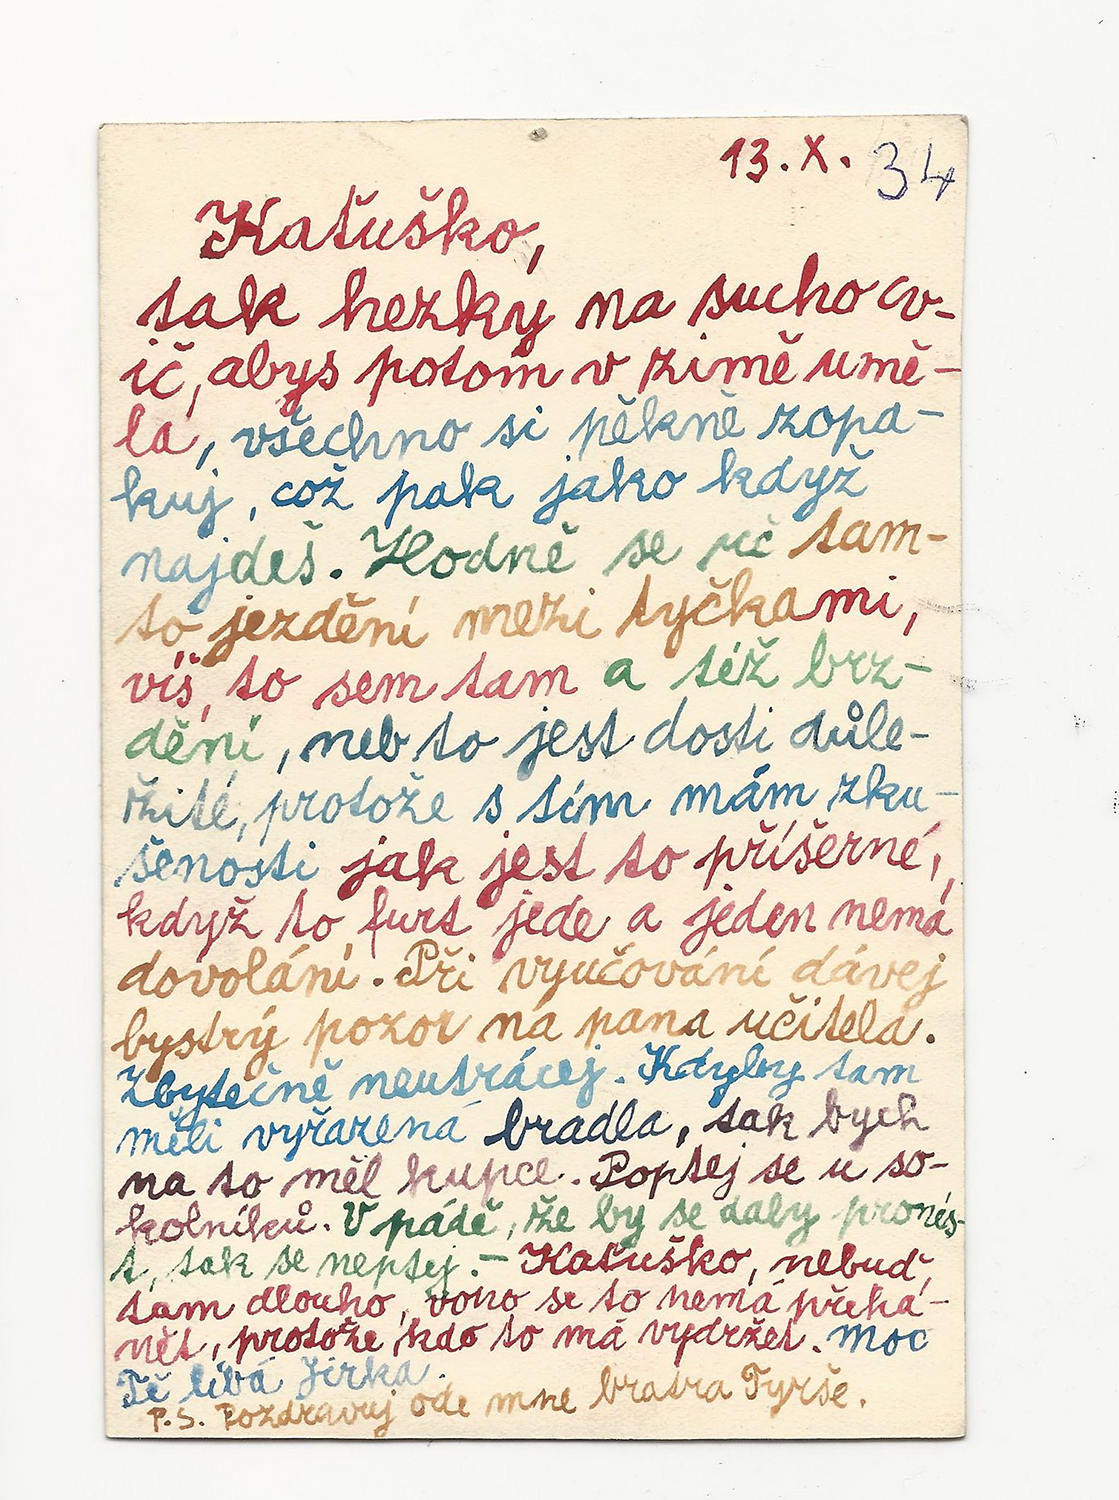 13. X. 34
Kaťuško,
tak hezky na sucho cv-
ič, abys potom v zimě umě-
la, všechno si pěkně zopa-
kuj, což pak jako když
najdeš. Hodně se uč tam-
to jezdění mezi tyčkami,
víš, to sem tam a též brz-
dění, neb to jest dosti důle-
žité, protože s tím mám zku-
šenosti jak jest to příšerné,
když to furt jede a jeden nemá
dovolání. Při vyučování dávej
bystrý pozor na pana učitela.
Zbytečně neutrácej. Kdyby tam
měli vyřazená bradla, tak bych
na to měl kupce. Poptej se u so-
kolníků. V pádě, že by se daly pronés-
t, tak se neptej. - Kaťuško, nebuď
tam dlouho, vono se to nemá přehá-
nět, protože kdo to má vydržet. Moc
Tě líbá Jirka.
P.S. Pozdravuj ode mne bratra Tyrše.